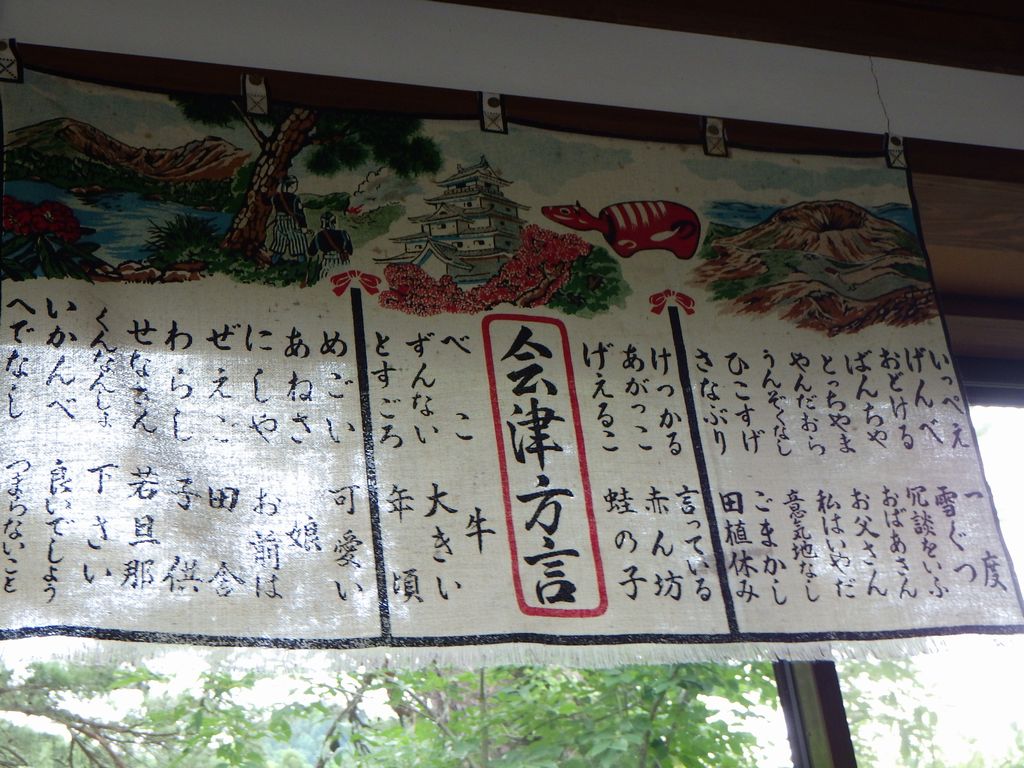 いっぺえ 一度
げんべ 雪ぐつ
おどける 冗談をいふ
ばんちや おばあさん
とっちやま お父さん
やんだおら 私はいやだ
うんぞくなし 意気地なし
ひこすげ ごまかし
さなぶり 田植休み
けっかる 言っている
あがっこ 赤ん坊
げえるこ 蛙の子
会津方言
べこ 牛
ずんない 大きい
とすごろ 年頃
めごい 可愛い
あねさ 娘
にしや お前は
ぜえご 田舎
わらし 子供
せなさん 若旦那
くんなんしょ 下さい
いかんべ 良いでしょう
へでなし つまらないこと